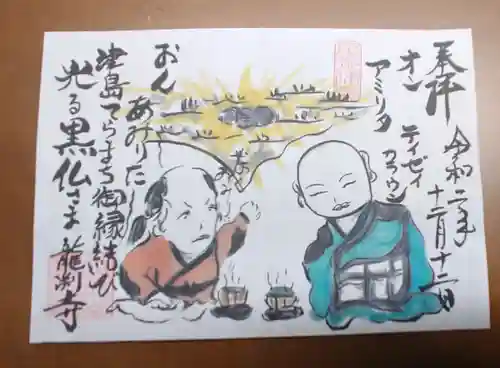 奉拝
令和二年
十二月十二日
オン
アミリタ
テイゼイ
カラウン
おん
あみりた
津島てらまち御縁結び
光る黒仏さま 龍渕寺